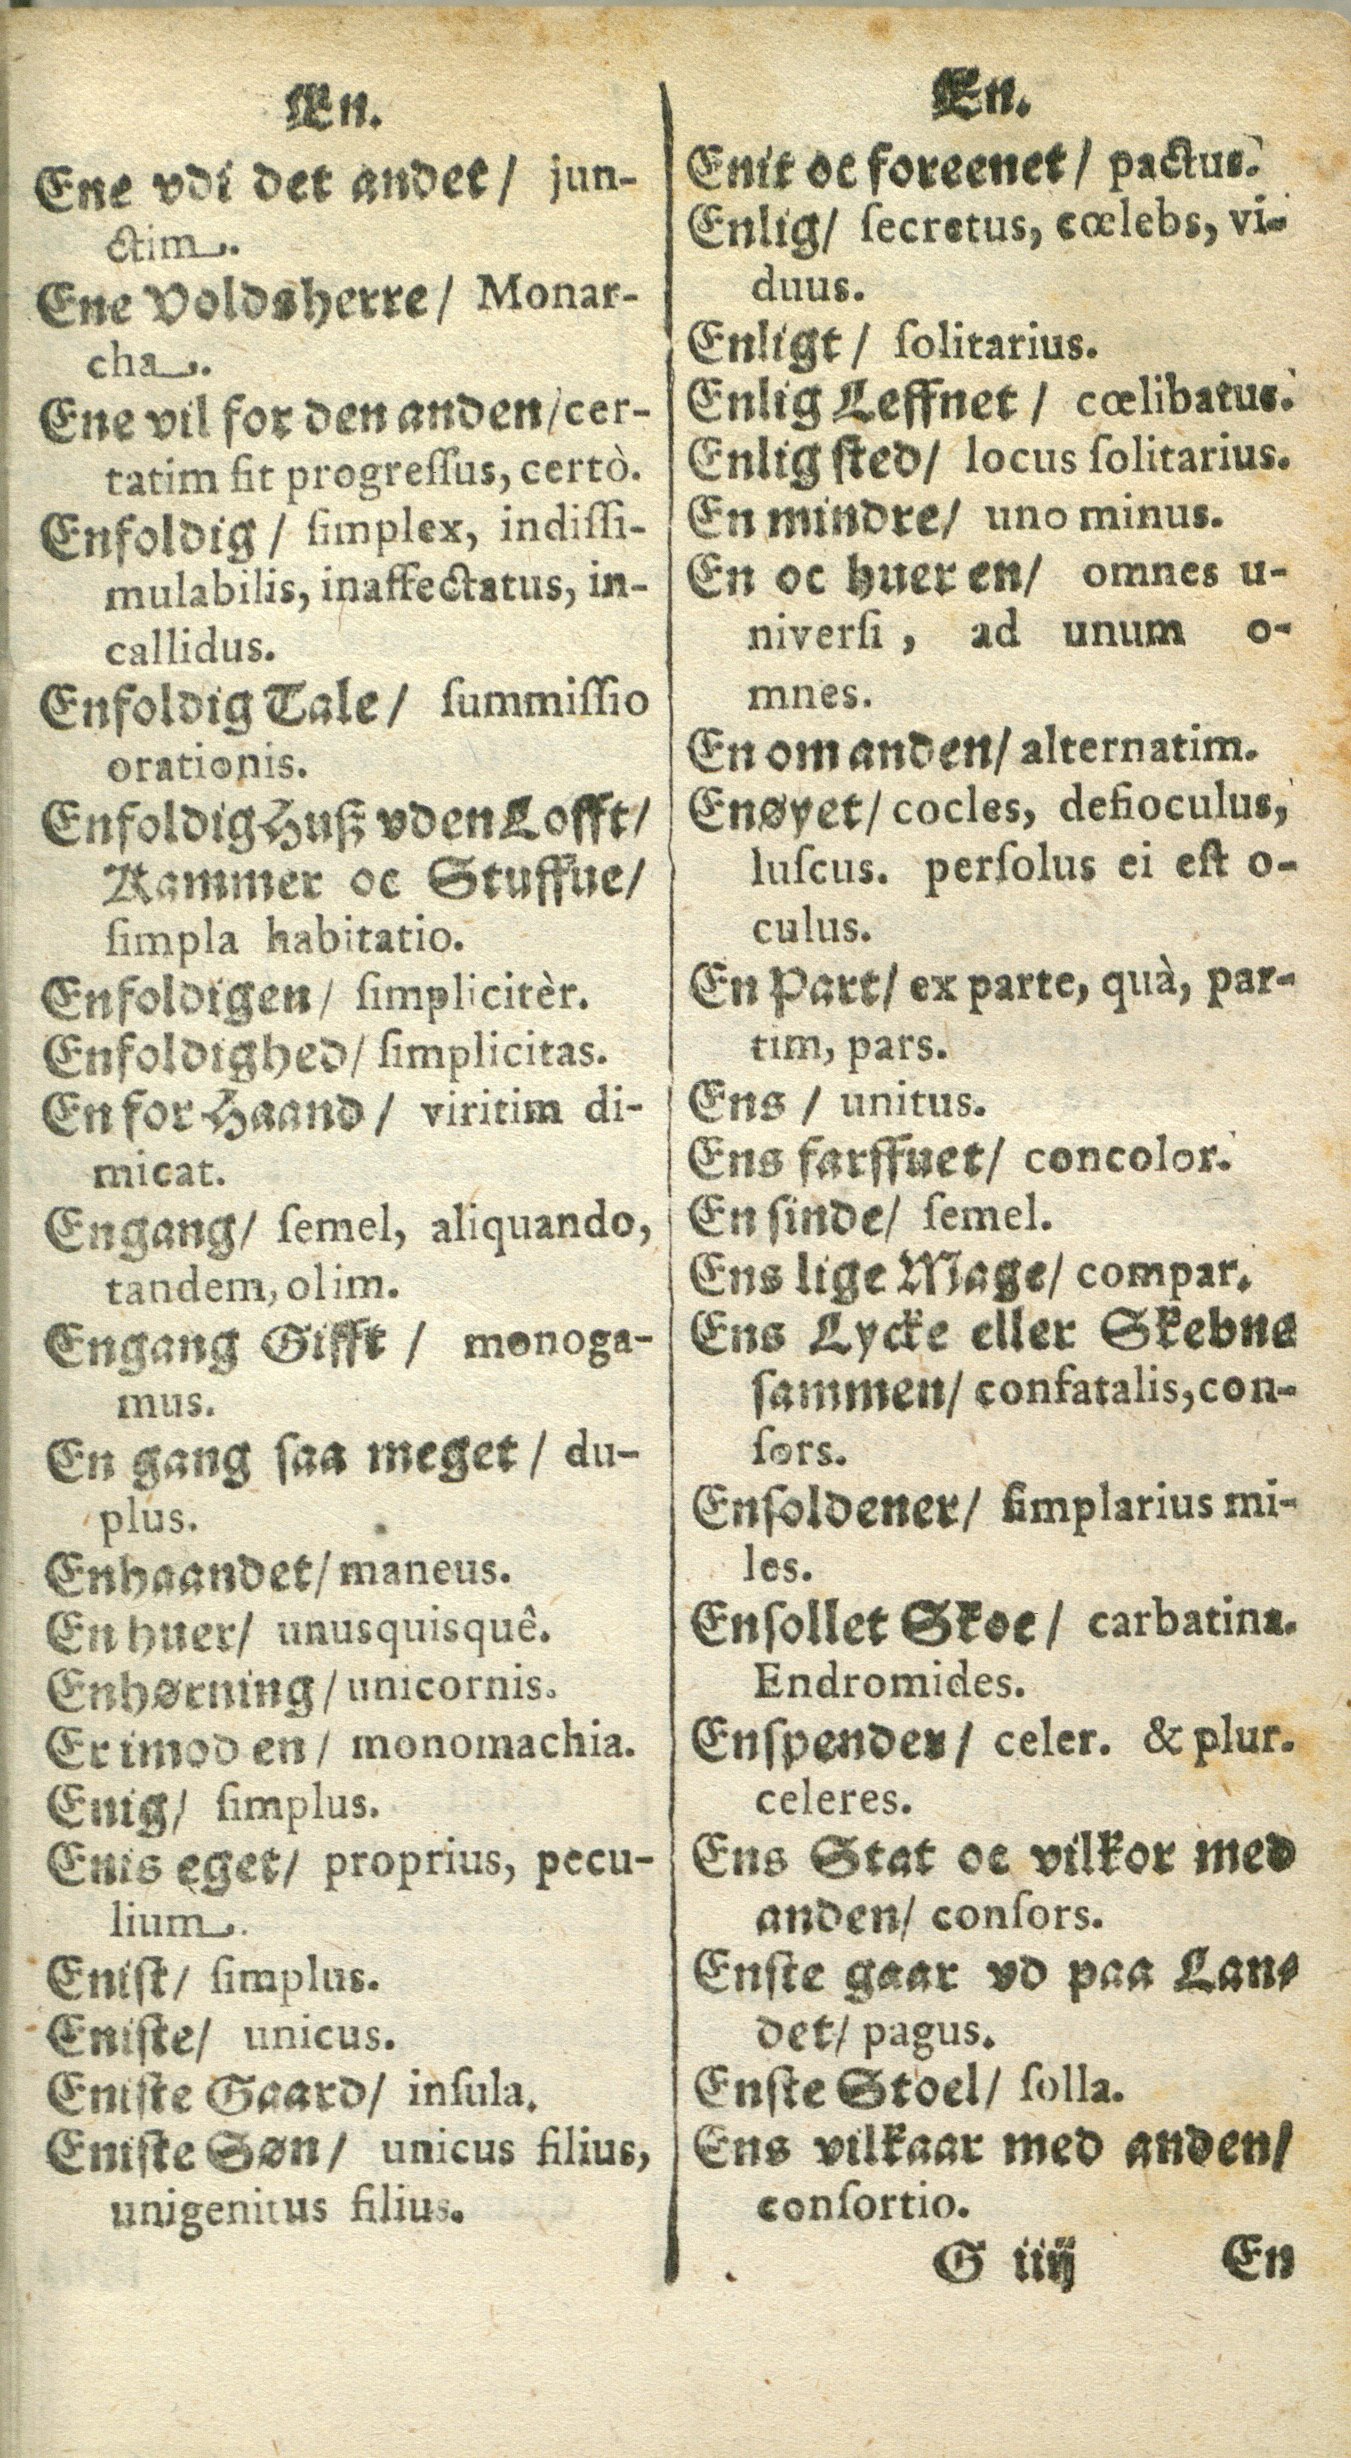 En.
Ene vdi det andet/ jun-
ctim.
Ene Voldsherre/ Monar-
cha.
Ene vil for den anden/cer-
tatim fit progreſſus, certò.
Enfoldig/ ſimplex, indiſſi-
mulabilis, inaffectatus, in-
callidus.
Enfoldig Tale/ ſummiſſio
orationis.
Enfoldig Huß vden Lofft/
Kammer oc Stuffue/
ſimpla habitatio.
Enfoldigen/ ſimplicitèr.
Enfoldighed/ ſimplicitas.
En for Haand/ viritim di-
micat.
Engang/ ſemel, aliquando,
tandem, olim.
Engang Gifft/ monoga-
mus.
En gang ſaa meget/ du-
plus.
Enhaandet/ maneus.
En huer/ unusquisquê.
Enhørning/ unicornis.
Er imod en/ monomachia.
Enig/ ſimplus.
Enis eget/ proprius, pecu-
lium.
Eniſt/ ſimplus.
Eniſte/ unicus.
Eniſte Gaard/ inſula.
Eniſte Søn/ unicus filius,
unigenitus filius.
En.
Enit oc foreenet/ pactus.
Enlig/ ſecretus, cœlebs, vi-
duus.
Enligt/ ſolitarius.
Enlig Leffnet/ cœlibatus.
Enlig ſted/ locus ſolitarius.
En mindre/ uno minus.
En oc huer en/ omnes u-
niverſi, ad unum o-
mnes.
En om anden/ alternatim.
Enøyet/ cocles, defioculus,
luſcus. perſolus ei eſt o-
culus.
En Part/ ex parte, quà, par-
tim, pars.
Ens/ unitus.
Ens farffuet/ concolor.
En ſinde/ ſemel.
Ens lige Mage/ compar.
Ens Lycke eller Skebne
ſammen/ confatalis, con-
ſors.
Enſoldener/ ſimplarius mi-
les.
Enſollet Skoe/ carbatina.
Endromides.
Enſpender/ celer. & plur.
celeres.
Ens Stat oc vilkor med
anden/ conſors.
Enſte gaar vd paa Lan-
det/ pagus.
Enſte Stoel/ ſolla.
Ens vilkaar med anden/
conſortio.
G iiij En